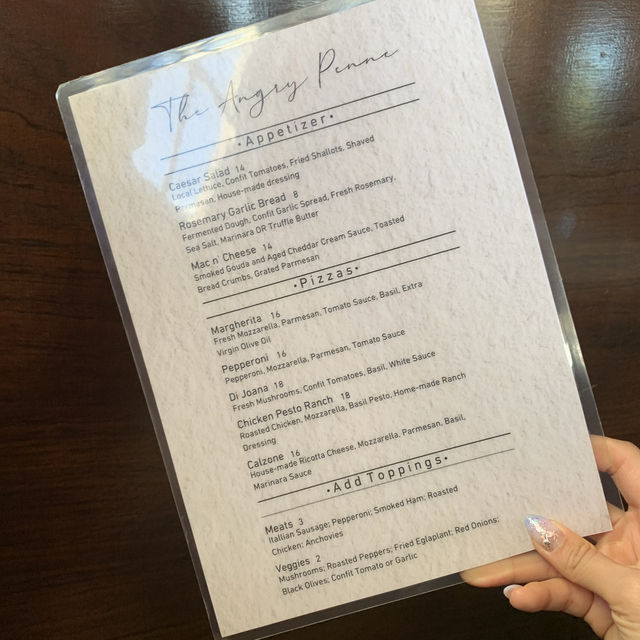 The Angry Penne
•Appetizer•
Caesar Salad 14
Local Lettuce, Confit Tomatoes, Fried Shallots, Shaved
Parmesan, House-made dressing
Rosemary Garlic Bread 8
Fermented Dough, Confit Garlic Spread, Fresh Rosemary,
Sea Salt, Marinara OR Truffle Butter
Mac n' Cheese 14
Smoked Gouda and Aged Cheddar Cream Sauce, Toasted
Bread Crumbs, Grated Parmesan
•Pizzas•
Margherita 16
Fresh Mozzarella, Parmesan, Tomato Sauce, Basil, Extra
Virgin Olive Oil
Pepperoni 16
Pepperoni, Mozzarella, Parmesan, Tomato Sauce
Di Joana 18
Fresh Mushrooms, Confit Tomatoes, Basil, White Sauce
Chicken Pesto Ranch 18
Roasted Chicken, Mozzarella, Basil Pesto, Home-made Ranch
Dressing
Calzone 16
House-made Ricotta Cheese, Mozzarella, Parmesan, Basil,
Marinara Sauce
•Add Toppings•
Meats 3
Itallian Sausage; Pepperoni; Smoked Ham; Roasted
Chicken; Anchovies
Veggies 2
Mushrooms; Roasted Peppers; Fried Eglaplant; Red Onions;
Black Olives; Confit Tomato or Garlic